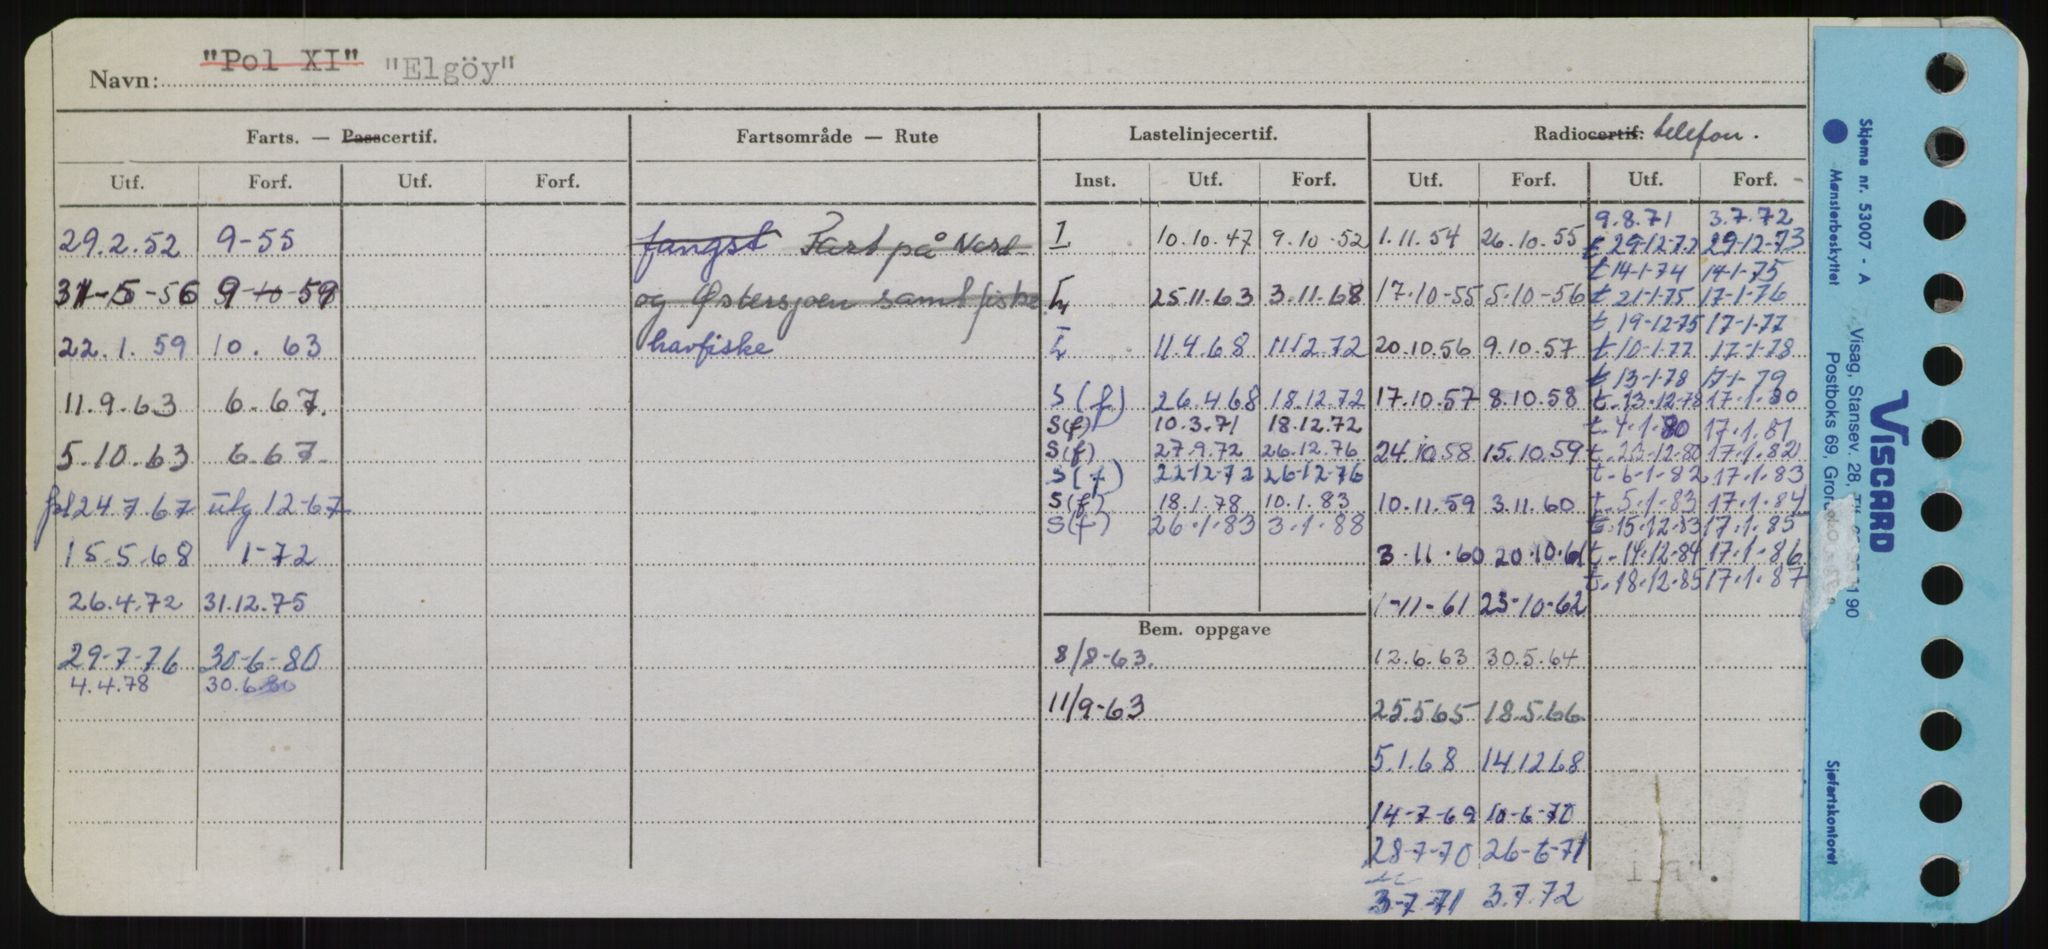 Navn: "Pol XI" "Elgöy"
Farts. — Passcertif. Fartsområde — Rute Lastelinjecertif. Radiocertif: telefon.
Utf. Forf. Utf. Forf. Inst. Utf. Forf. Utf. Forf. Utf. Forf.
9.8.71 3.7.72
29.2.52 9-55 fangst Fart på Nord- I 10.10.47 9.10-52 1.11.54 26.10.55 t 29-12-72 29-12-73
t 14-1-74 14-1-75
31-5-56 9-10-59 og Østersjøen samt fiske 25.11.63 3.11.68 17.10-55 5.10-56 t 21-1-75 17-1-76
t. 19-12-75 17-1-77
22.1.59 10. 63 havfiske 11.4.68 11.12.72 20.10.56 9.10.57 t. 10-1-77 17-1-78
t 13-1-78 17-1-79
11.9.63 6-67. S(f) 26.4.68 18.12.72 17.10.57 8.10.58 t. 13-12-78 17.1.80
S(f) 10.3.71 18.12.72 t. 4.1.80 17.1.81
5.10.63 6.67. S(f) 27.9.72 26.12.76 24.10.58 15.10.59 t. 23-12-80 17.1.82
S(f) 22-12-72 26-12-76 t. 6-1-82 17.1.83
24.7.67 utg 12-67 S(f) 18.1.78 10.1.83 10.11.59 3.11.60 t. 5.1.83 17.1.84
S(f) 26.1.83 3.1.88 t. 15.12.83 17.1.85
15.5.68 1-72 3.11.60 20.10.61 t. 14.12.84 17.1.86
t. 18.12.85 17.1.87
26.4.72 31.12.75 1-11-61 23-10-62
Bem. oppgave
29-7-76 30-6-80 8/8-63. 12.6.63 30.5.64
4.4.78 30.6.80
11/9-63 25.5.65 18.5.66
5.1.68 14.12.68
14-7-69 10-6-70
28-7-70 26-6-71
3-7-71 3.7.72
Skjema nr. 53007 - A
Mønsterbeskyttet
VISCARD
Visag, Stansev. 28,
190
Postboks 69,
Sjøfartskontoret